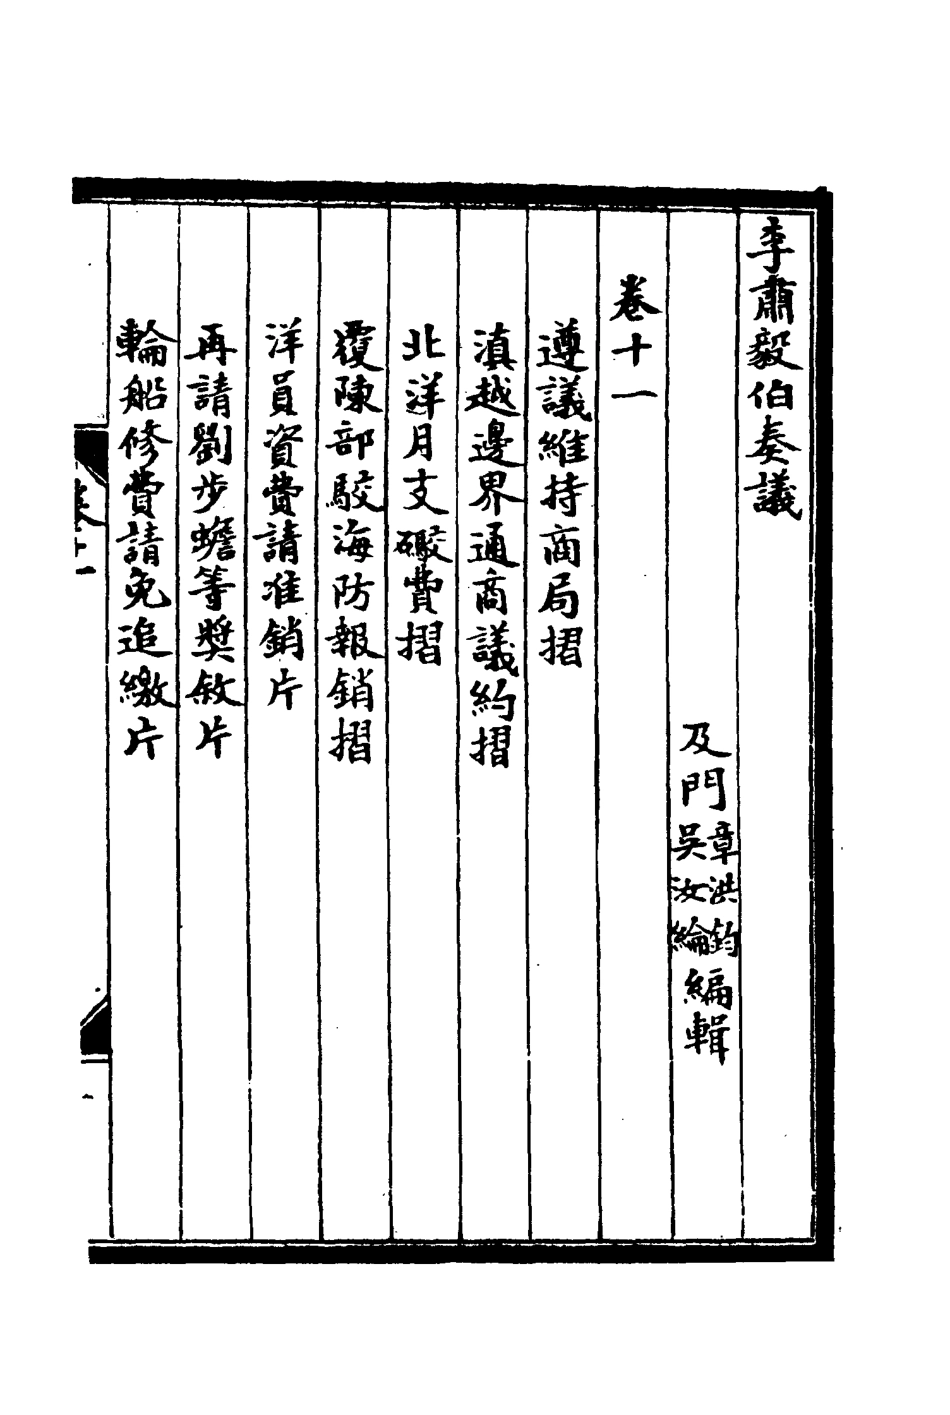 李肅毅伯奏議
及門章洪鈞吳汝綸編輯
卷十一
遵議維持商局摺
滇越邊界通商議約摺
北洋月支礮費摺
覆陳部駁海防報銷摺
洋員資費請准銷片
再請劉步蟾等獎敘片
輪船修費請免追繳片
卷十一
一